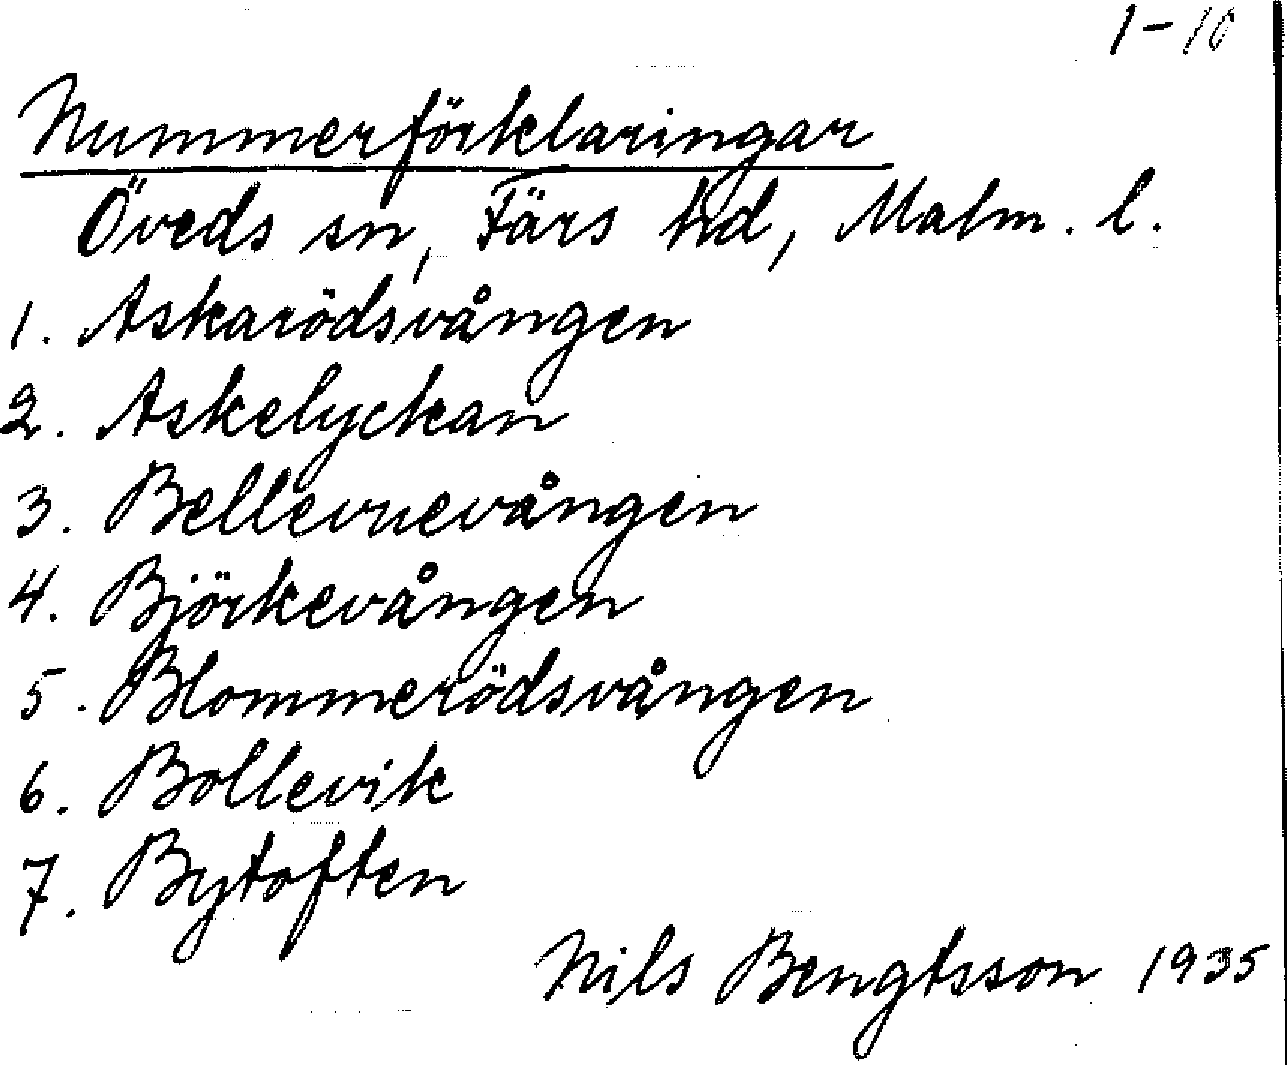 1-10
Nummerförklaringar
Öveds sn, Färs hd, Malm. l.
1. Askarödsvången
2. Askelyckan
3. Bellevuevången
4. Björkevången
5. Blommerödsvången
6. Bollevik
7. Bytoften
Nils Bengtsson 1935